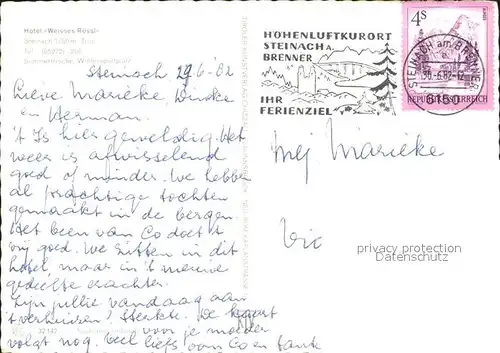 Hotel »Weisses Rössl«
Steinach 1050 m Tirol
Sommerfrische, Wintersportplatz
Steinach 29.6-82
Lieve Marieke,
en Herman.
't Is hier geweldig. Het
weer is afwisselend
goed of minder. We hebben
al prachtige tochten
gemaakt in de bergen.
Het been van Co doet 't
goed. We zitten in dit
hotel, maar in 't nieuwe
gedeelte erachter.
Zijn jullie vandaag aan
't verhuizen? Sterkte. De kaart
voor je moeder
volgt nog. Veel liefs van Co en tante
HÖHENLUFTKURORT
STEINACH A.
BRENNER
IHR
FERIENZIEL
4S
REPUBLIK ÖSTERREICH
STEINACH am BRENNER
30.-6.82-12
6150
Mej Marieke
privacy protection
Datenschutz